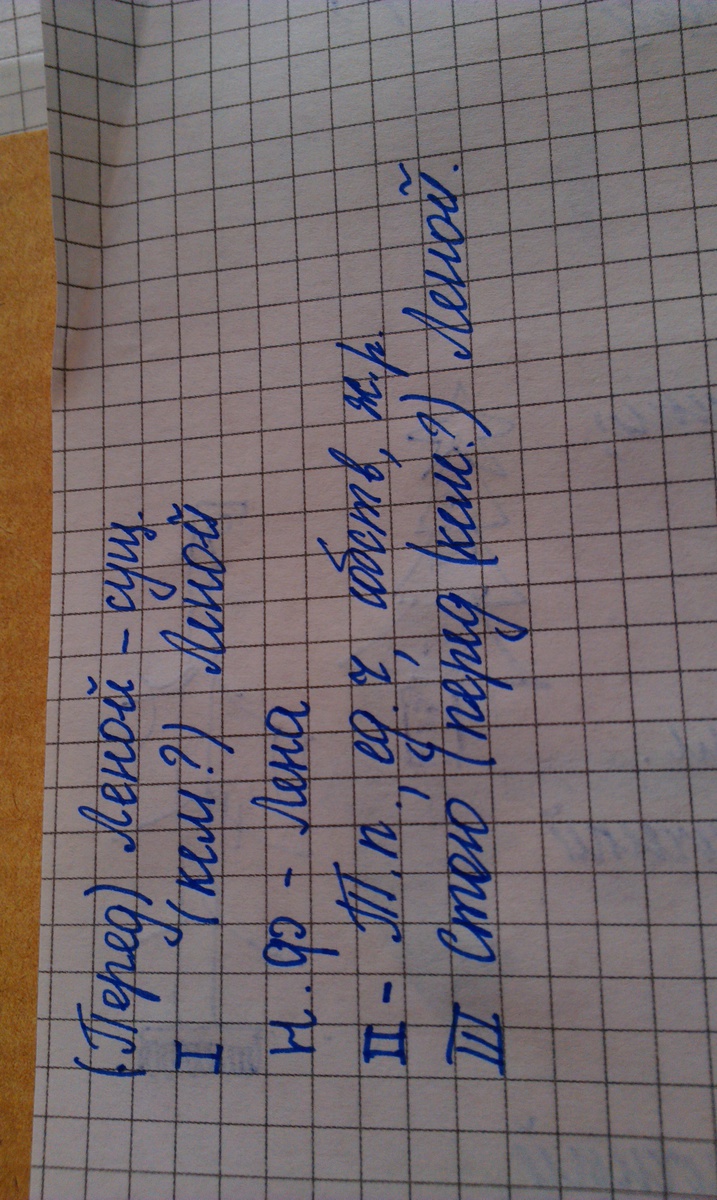 (Перед) Леной - сущ.
I (кем?) Леной
Н.ф - Лена
II - Т.п., ед.ч, собств, ж.р.
III Стою (перед (кем?) Леной.